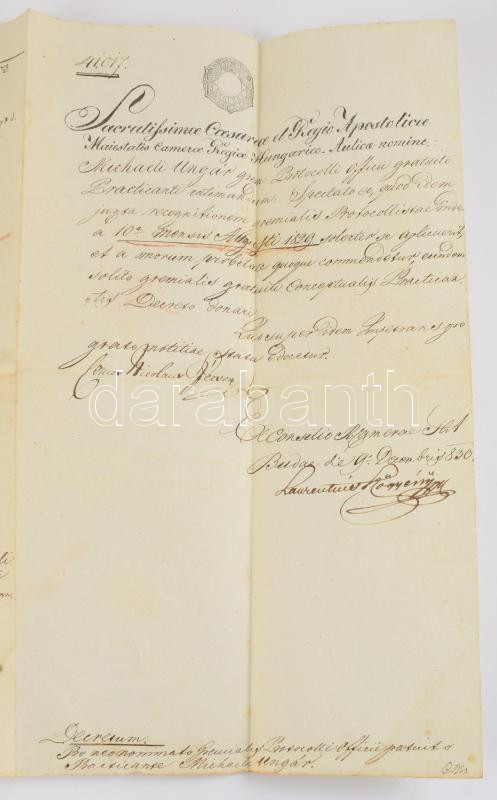 41017.
Sacratissimae Caesareae et Regio Apostolicae
Maiestatis Camerae Regiae Hungarico-Aulicae nomine:
Michaeli Ungár gremialis Protocolli Officii gratuito
Practicanti intimandum: Spectato eo, quod idem
juxta recognitionem gremialis Protocollistae inde
a 10a mensis Augusti 1829 solerter se aplicuerit,
et a morum probitate quoque commendetur, eundem
solito gremialis gratuiti Conceptualis Practican
tis Decreto donari
Quo super idem Imperans pro
grata notitiae statu edocetur.
Nicolaus
E Consilio Camerae
Budae die 9a Decembris 830.
Laurentius
arabanth
Decretum
Pro neonominato Gremialis Protocolli Officii gratuito
Practicante Michaeli Ungár.